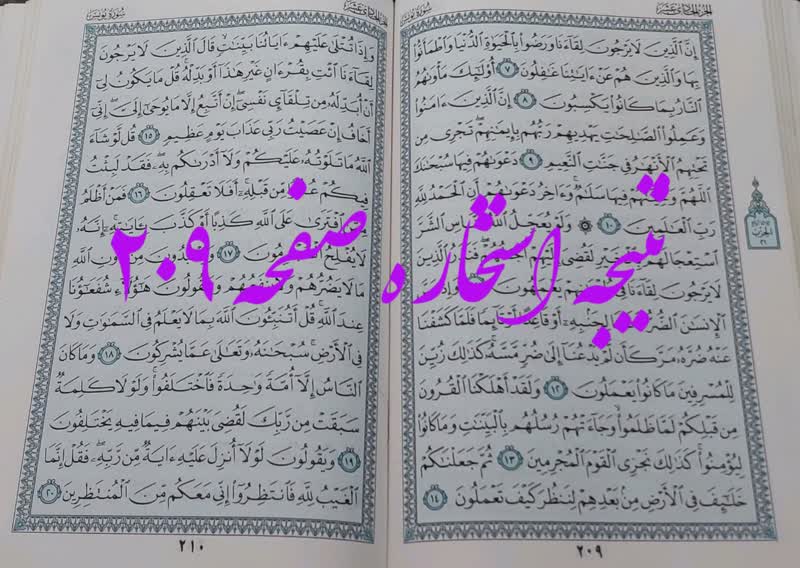 سُورَةُ يُونُسَ
إِنَّ ٱلَّذِينَ لَا يَرْجُونَ لِقَآءَنَا وَرَضُوا۟ بِٱلْحَيَوٰةِ ٱلدُّنْيَا وَٱطْمَأَنُّوا۟
بِهَا وَٱلَّذِينَ هُمْ عَنْ ءَايَٰتِنَا غَٰفِلُونَ ٧ أُو۟لَٰٓئِكَ مَأْوَىٰهُمُ
ٱلنَّارُ بِمَا كَانُوا۟ يَكْسِبُونَ ٨ إِنَّ ٱلَّذِينَ ءَامَنُوا۟
وَعَمِلُوا۟ ٱلصَّٰلِحَٰتِ يَهْدِيهِمْ رَبُّهُم بِإِيمَٰنِهِمْ تَجْرِى مِن
تَحْتِهِمُ ٱلْأَنْهَٰرُ فِى جَنَّٰتِ ٱلنَّعِيمِ ٩ دَعْوَىٰهُمْ فِيهَا سُبْحَٰنَكَ
ٱللَّهُمَّ وَتَحِيَّتُهُمْ فِيهَا سَلَٰمٌ وَءَاخِرُ دَعْوَىٰهُمْ أَنِ ٱلْحَمْدُ لِلَّهِ
رَبِّ ٱلْعَٰلَمِينَ ١٠ وَلَوْ يُعَجِّلُ ٱللَّهُ لِلنَّاسِ ٱلشَّرَّ
ٱسْتِعْجَالَهُم بِٱلْخَيْرِ لَقُضِىَ إِلَيْهِمْ أَجَلُهُمْ فَنَذَرُ ٱلَّذِينَ
لَا يَرْجُونَ لِقَآءَنَا فِى طُغْيَٰنِهِمْ يَعْمَهُونَ ١١ وَإِذَا مَسَّ
ٱلْإِنسَٰنَ ٱلضُّرُّ دَعَانَا لِجَنۢبِهِۦٓ أَوْ قَاعِدًا أَوْ قَآئِمًا فَلَمَّا كَشَفْنَا
عَنْهُ ضُرَّهُۥ مَرَّ كَأَن لَّمْ يَدْعُنَآ إِلَىٰ ضُرٍّ مَّسَّهُۥ كَذَٰلِكَ زُيِّنَ
لِلْمُسْرِفِينَ مَا كَانُوا۟ يَعْمَلُونَ ١٢ وَلَقَدْ أَهْلَكْنَا ٱلْقُرُونَ
مِن قَبْلِكُمْ لَمَّا ظَلَمُوا۟ وَجَآءَتْهُمْ رُسُلُهُم بِٱلْبَيِّنَٰتِ وَمَا كَانُوا۟
لِيُؤْمِنُوا۟ كَذَٰلِكَ نَجْزِى ٱلْقَوْمَ ٱلْمُجْرِمِينَ ١٣ ثُمَّ جَعَلْنَٰكُمْ
خَلَٰٓئِفَ فِى ٱلْأَرْضِ مِنۢ بَعْدِهِمْ لِنَنظُرَ كَيْفَ تَعْمَلُونَ ١٤
٢٠٩
سُورَةُ يُونُسَ
وَإِذَا تُتْلَىٰ عَلَيْهِمْ ءَايَاتُنَا بَيِّنَٰتٍ قَالَ ٱلَّذِينَ لَا يَرْجُونَ
لِقَآءَنَا ٱئْتِ بِقُرْءَانٍ غَيْرِ هَٰذَآ أَوْ بَدِّلْهُ قُلْ مَا يَكُونُ لِىٓ
أَنْ أُبَدِّلَهُۥ مِن تِلْقَآئِ نَفْسِىٓ إِنْ أَتَّبِعُ إِلَّا مَا يُوحَىٰٓ إِلَىَّ إِنِّىٓ
أَخَافُ إِنْ عَصَيْتُ رَبِّى عَذَابَ يَوْمٍ عَظِيمٍ ١٥ قُل لَّوْ شَآءَ
ٱللَّهُ مَا تَلَوْتُهُۥ عَلَيْكُمْ وَلَآ أَدْرَىٰكُم بِهِۦ فَقَدْ لَبِثْتُ
فِيكُمْ عُمُرًا مِّن قَبْلِهِۦٓ أَفَلَا تَعْقِلُونَ ١٦ فَمَنْ أَظْلَمُ
مِمَّنِ ٱفْتَرَىٰ عَلَى ٱللَّهِ كَذِبًا أَوْ كَذَّبَ بِـَٔايَٰتِهِۦٓ إِنَّهُۥ
لَا يُفْلِحُ ٱلْمُجْرِمُونَ ١٧ وَيَعْبُدُونَ مِن دُونِ ٱللَّهِ
مَا لَا يَضُرُّهُمْ وَلَا يَنفَعُهُمْ وَيَقُولُونَ هَٰٓؤُلَآءِ شُفَعَٰٓؤُنَا
عِندَ ٱللَّهِ قُلْ أَتُنَبِّـُٔونَ ٱللَّهَ بِمَا لَا يَعْلَمُ فِى ٱلسَّمَٰوَٰتِ وَلَا
فِى ٱلْأَرْضِ سُبْحَٰنَهُۥ وَتَعَٰلَىٰ عَمَّا يُشْرِكُونَ ١٨ وَمَا كَانَ
ٱلنَّاسُ إِلَّآ أُمَّةً وَٰحِدَةً فَٱخْتَلَفُوا۟ وَلَوْلَا كَلِمَةٌ
سَبَقَتْ مِن رَّبِّكَ لَقُضِىَ بَيْنَهُمْ فِيمَا فِيهِ يَخْتَلِفُونَ
١٩ وَيَقُولُونَ لَوْلَآ أُنزِلَ عَلَيْهِ ءَايَةٌ مِّن رَّبِّهِۦ فَقُلْ إِنَّمَا
ٱلْغَيْبُ لِلَّهِ فَٱنتَظِرُوٓا۟ إِنِّى مَعَكُم مِّنَ ٱلْمُنتَظِرِينَ ٢٠
٢١٠
نتیجه استخاره صفحه ٢٠٩